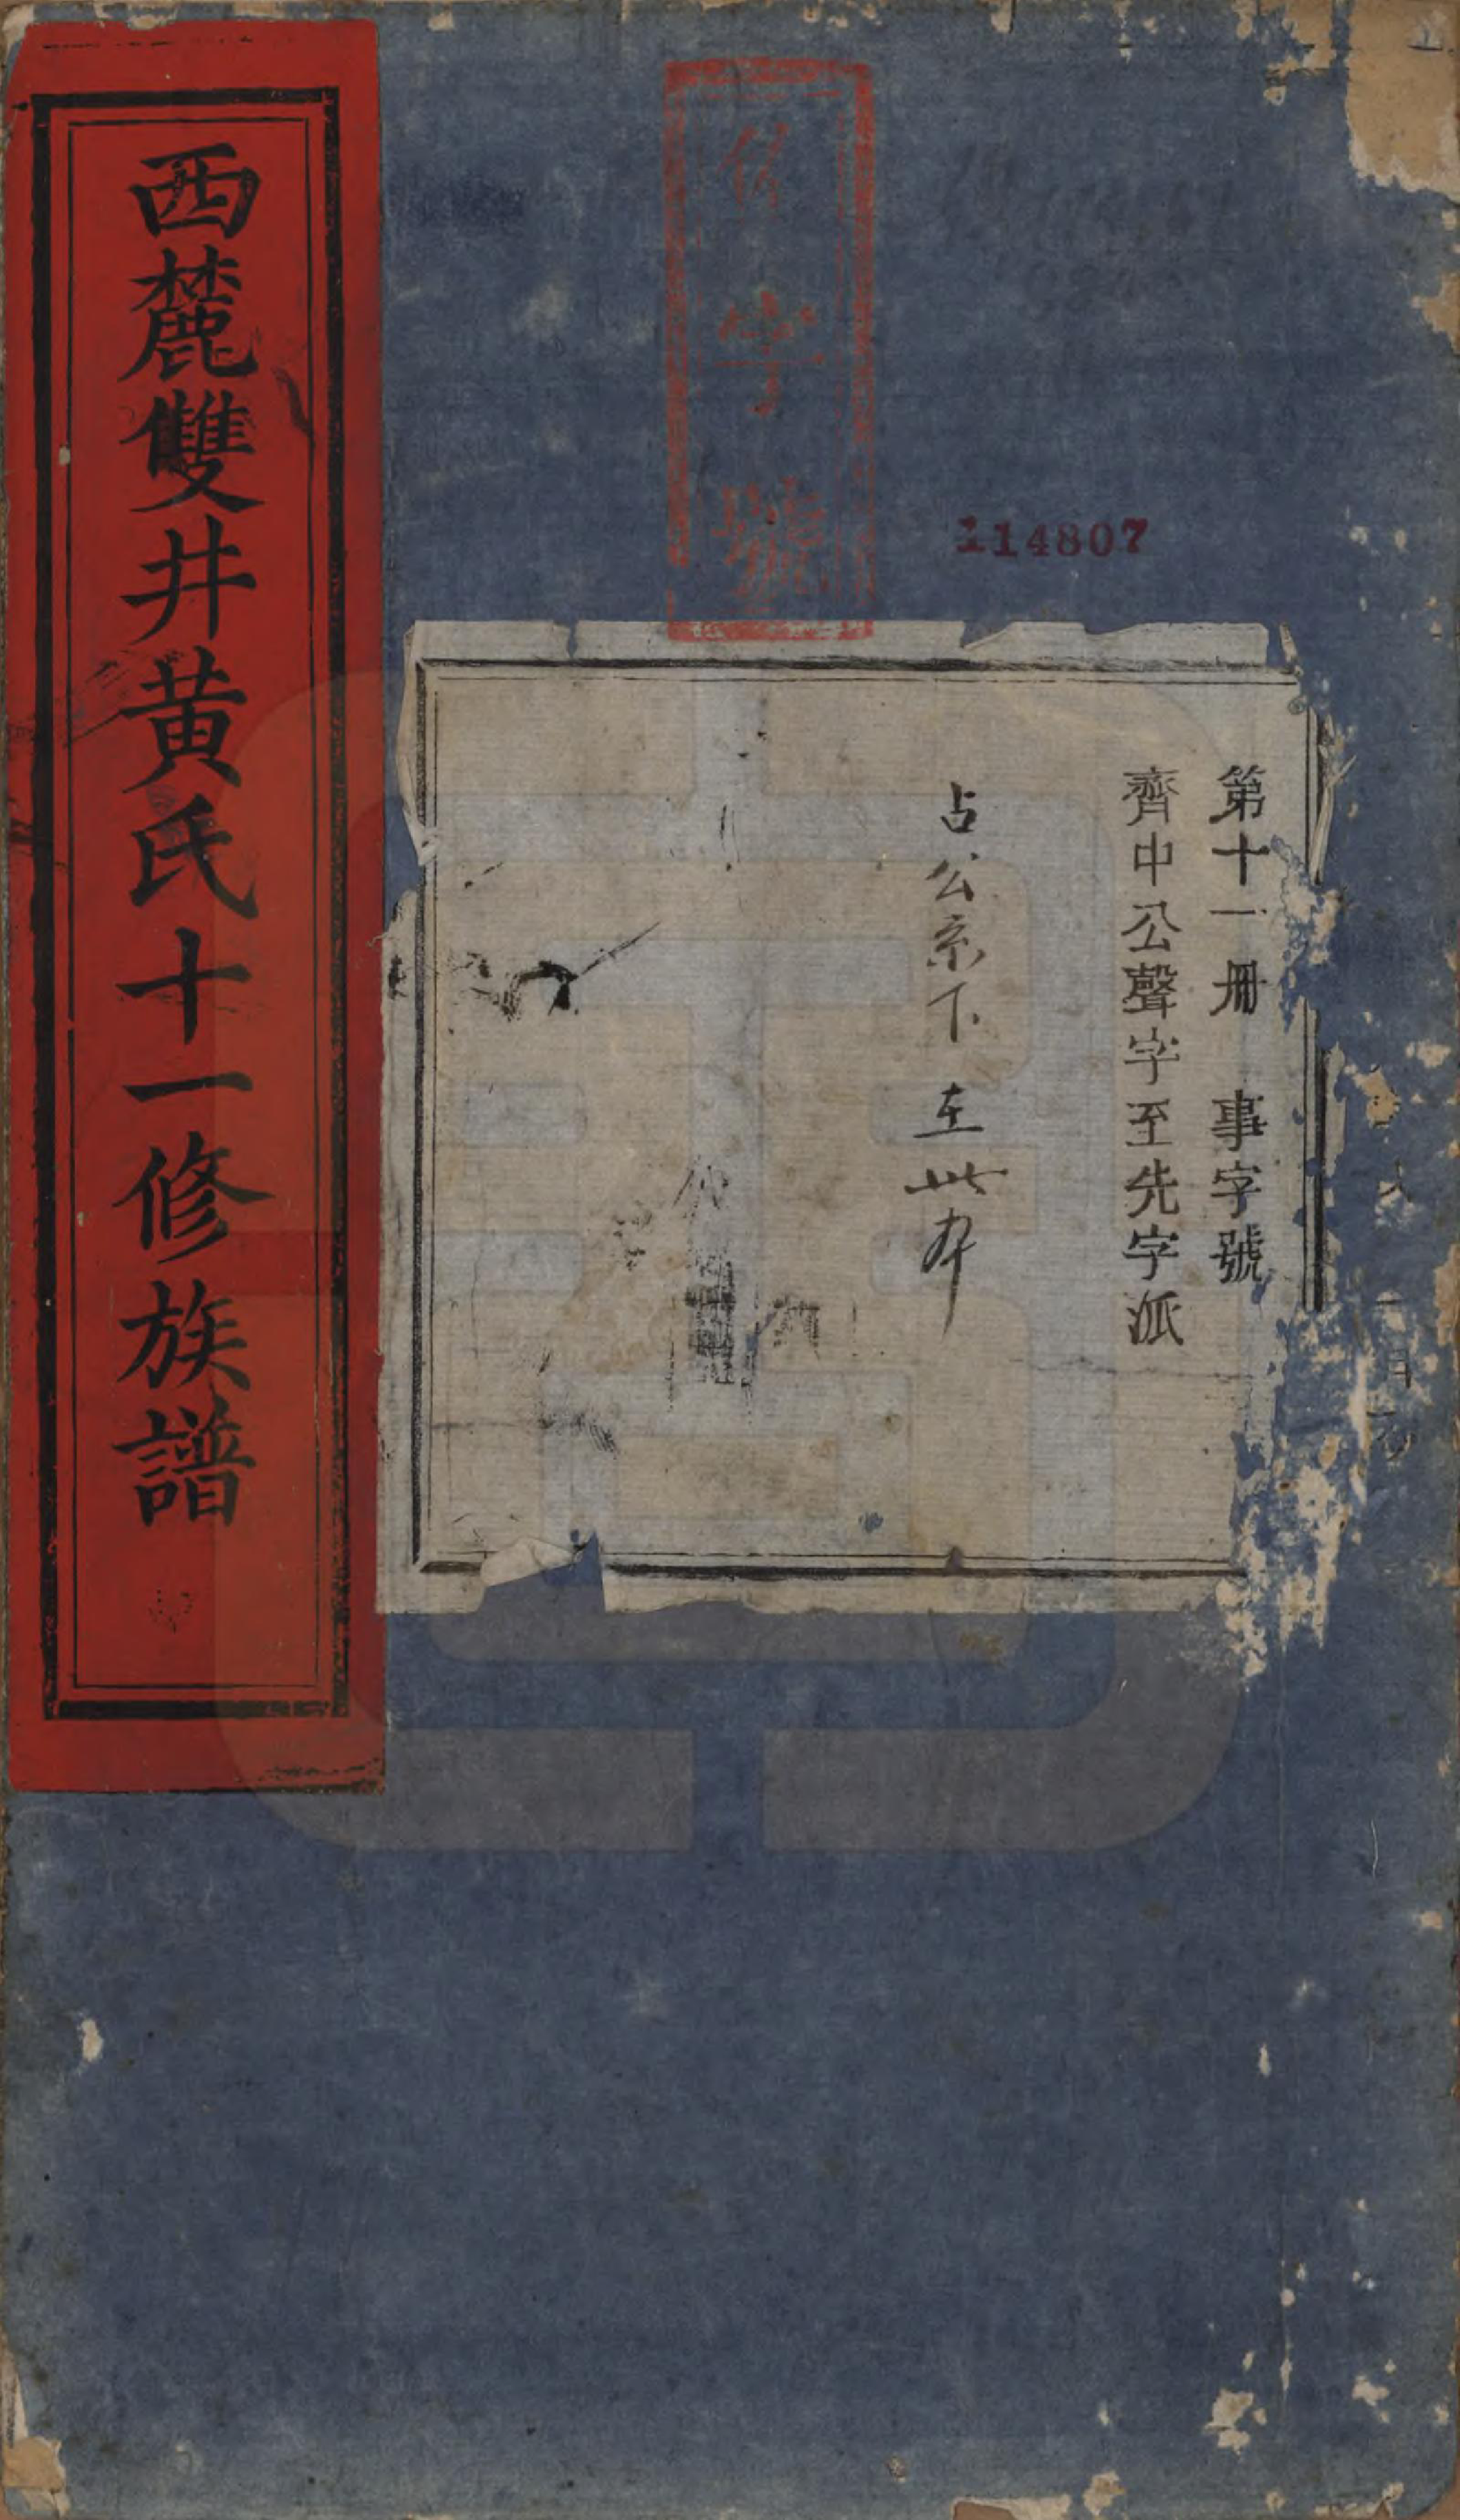 第十一册　事字號
齊中公聲字至先字派
占公系下　在此本
字號
114807
西麓雙井黄氏十一修族譜